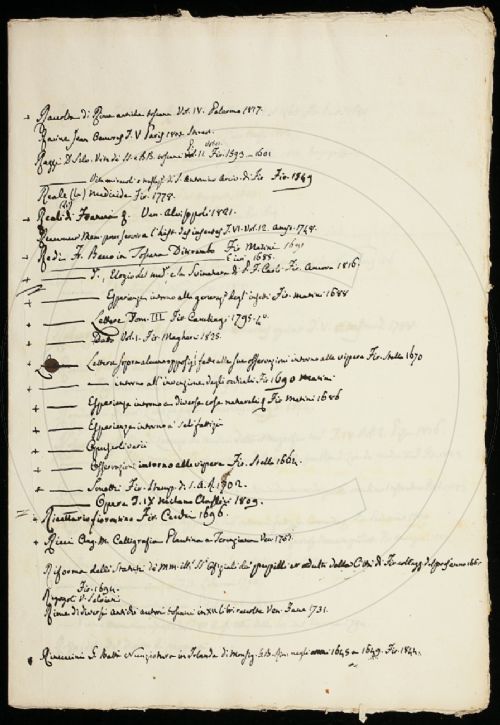 + Raccolta di Rime antiche toscane Vol. IV. Palermo 1817.
Racine Jean Oeuvres T. V Paris 1802.
Razzi D. Silv. Vita di SS. e BB. toscani Vol. II. Fir. 1593 - 1601
——— Vita miracoli e di S. Antonino Arciv. di Fir. Fir. 1589
Reale (la) Medicide Fir. 1778.
+ Reali di Francia 8. Ven. Alvisopoli 1821.
Reaumur Mem. pour servir a l'hist. des insectes T. VI. Vol. 12. Amst. 1748.
+ Redi F. Bacco in Toscana Ditirambo Fir. Matini 1691
E ivi 1685.
+ ——— E, Elogio del e la Scimatura di Fir. Ancora 1816.
——— Esperienze intorno alla generaz. degl' insetti Fir. Matini 1688
+ ——— Lettere Tom. III Fir. Cambiagi 1795. 4o.
+ ——— Dette Vol. 1. Fir. Magheri 1825.
——— Lettera sopra alcune opposizioni fatte alle sue osservazioni intorno alle vipere Fir. Stella 1670
+ — ——— intorno all' invenzione degli occhiali Fir. 1690 Matini
+ ——— Esperienze intorno a diverse cose naturali Fir. Matini 1686
+ ——— Esperienze intorno a' sali fattizi
+ ——— Opuscoli varii
+ ——— Osservazioni intorno alle vipere Fir. Stella 1664.
+ ——— Sonetti Fir. Stamp. di S.A.R. 1702.
——— Opere T. IX Milano Classici 1809.
+ Ricettario fiorentino Fir. Cecchi 1696.
+ Ricci Ang. M. Calligrafia Plautina e Terenziana Ven. 1751.
Riforma delli Statuti de' MM. Ill. SS. Ofiziali de' pupilli et adulti della Città di Fir.
Fir. 1694.
Rigogoli V. Salviati
Rime di diversi antichi autori toscani in XII libri raccolte Ven. Zane 1731.
Rinuccini G. Batta Nunziatura in Irlanda di Monsig. G.B. negli anni 1645 a 1649. Fir. 1844.